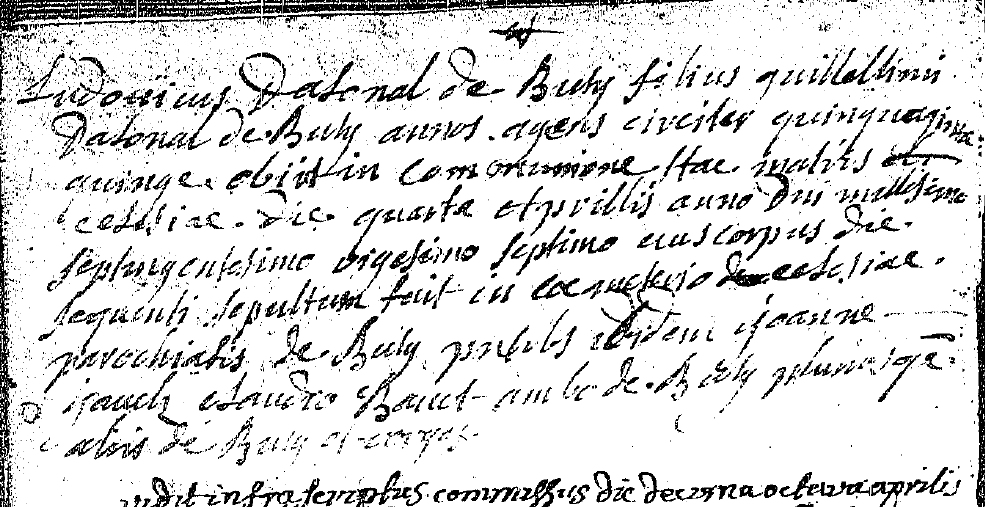 Ludovicus Datonal de Buly filius guillelimi
Datonal de Buly annos agens circiter quinquaginta
quinqe obiit in Communione stae matris
ecclesiae die quarta Aprillis anno Dni millesimo
septingentesimo vigesimo septimo eius corpus die
sequenti sepultum fuit in coemeterio ecclesiae
parochialis de Buly pntibs ibidem ioanne
Bauet ambo de Buly pluriesqe
aliis de Buly
infra templus commissus die decima octava aprilis